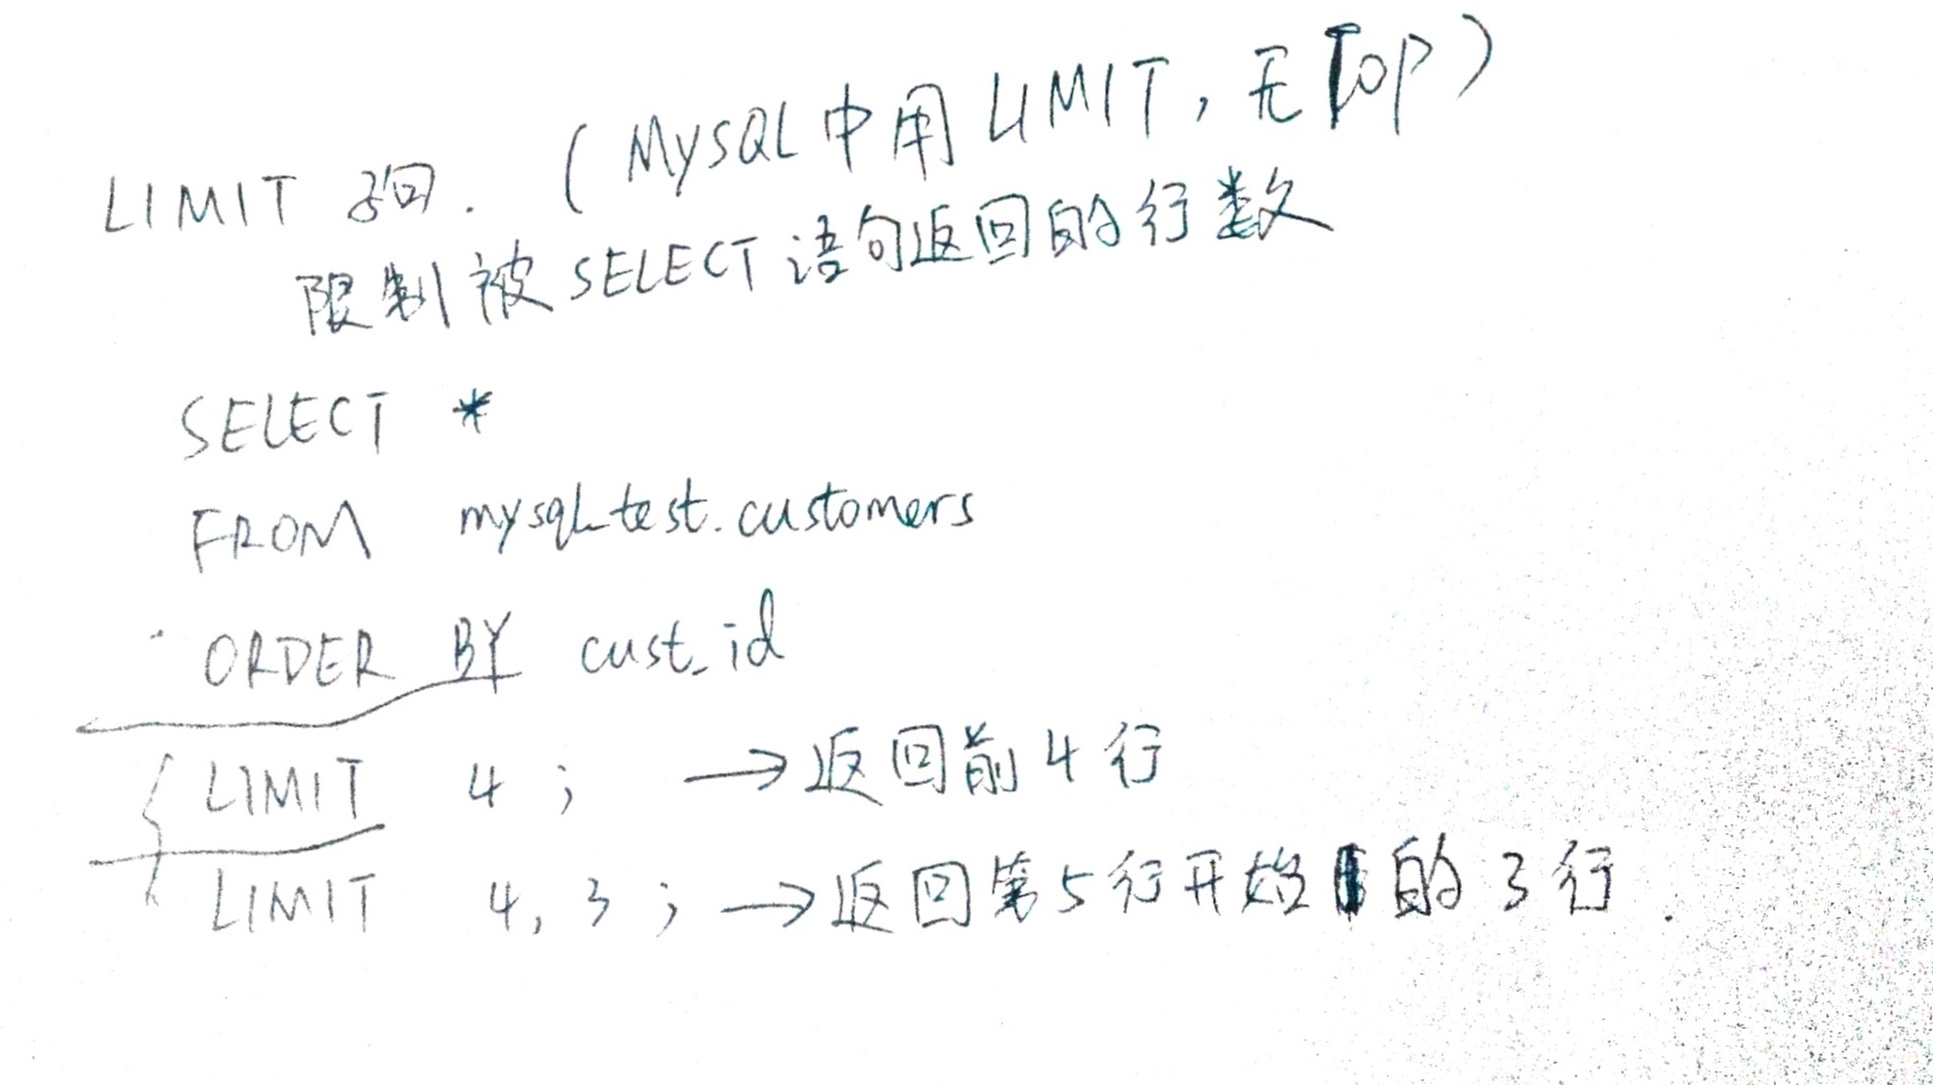 LIMIT 子句. (MySQL中用LIMIT,无Top)
限制被SELECT语句返回的行数
SELECT *
FROM mysql_test.customers
ORDER BY cust_id
LIMIT 4; →返回前4行
LIMIT 4,3; →返回第5行开始的3行.